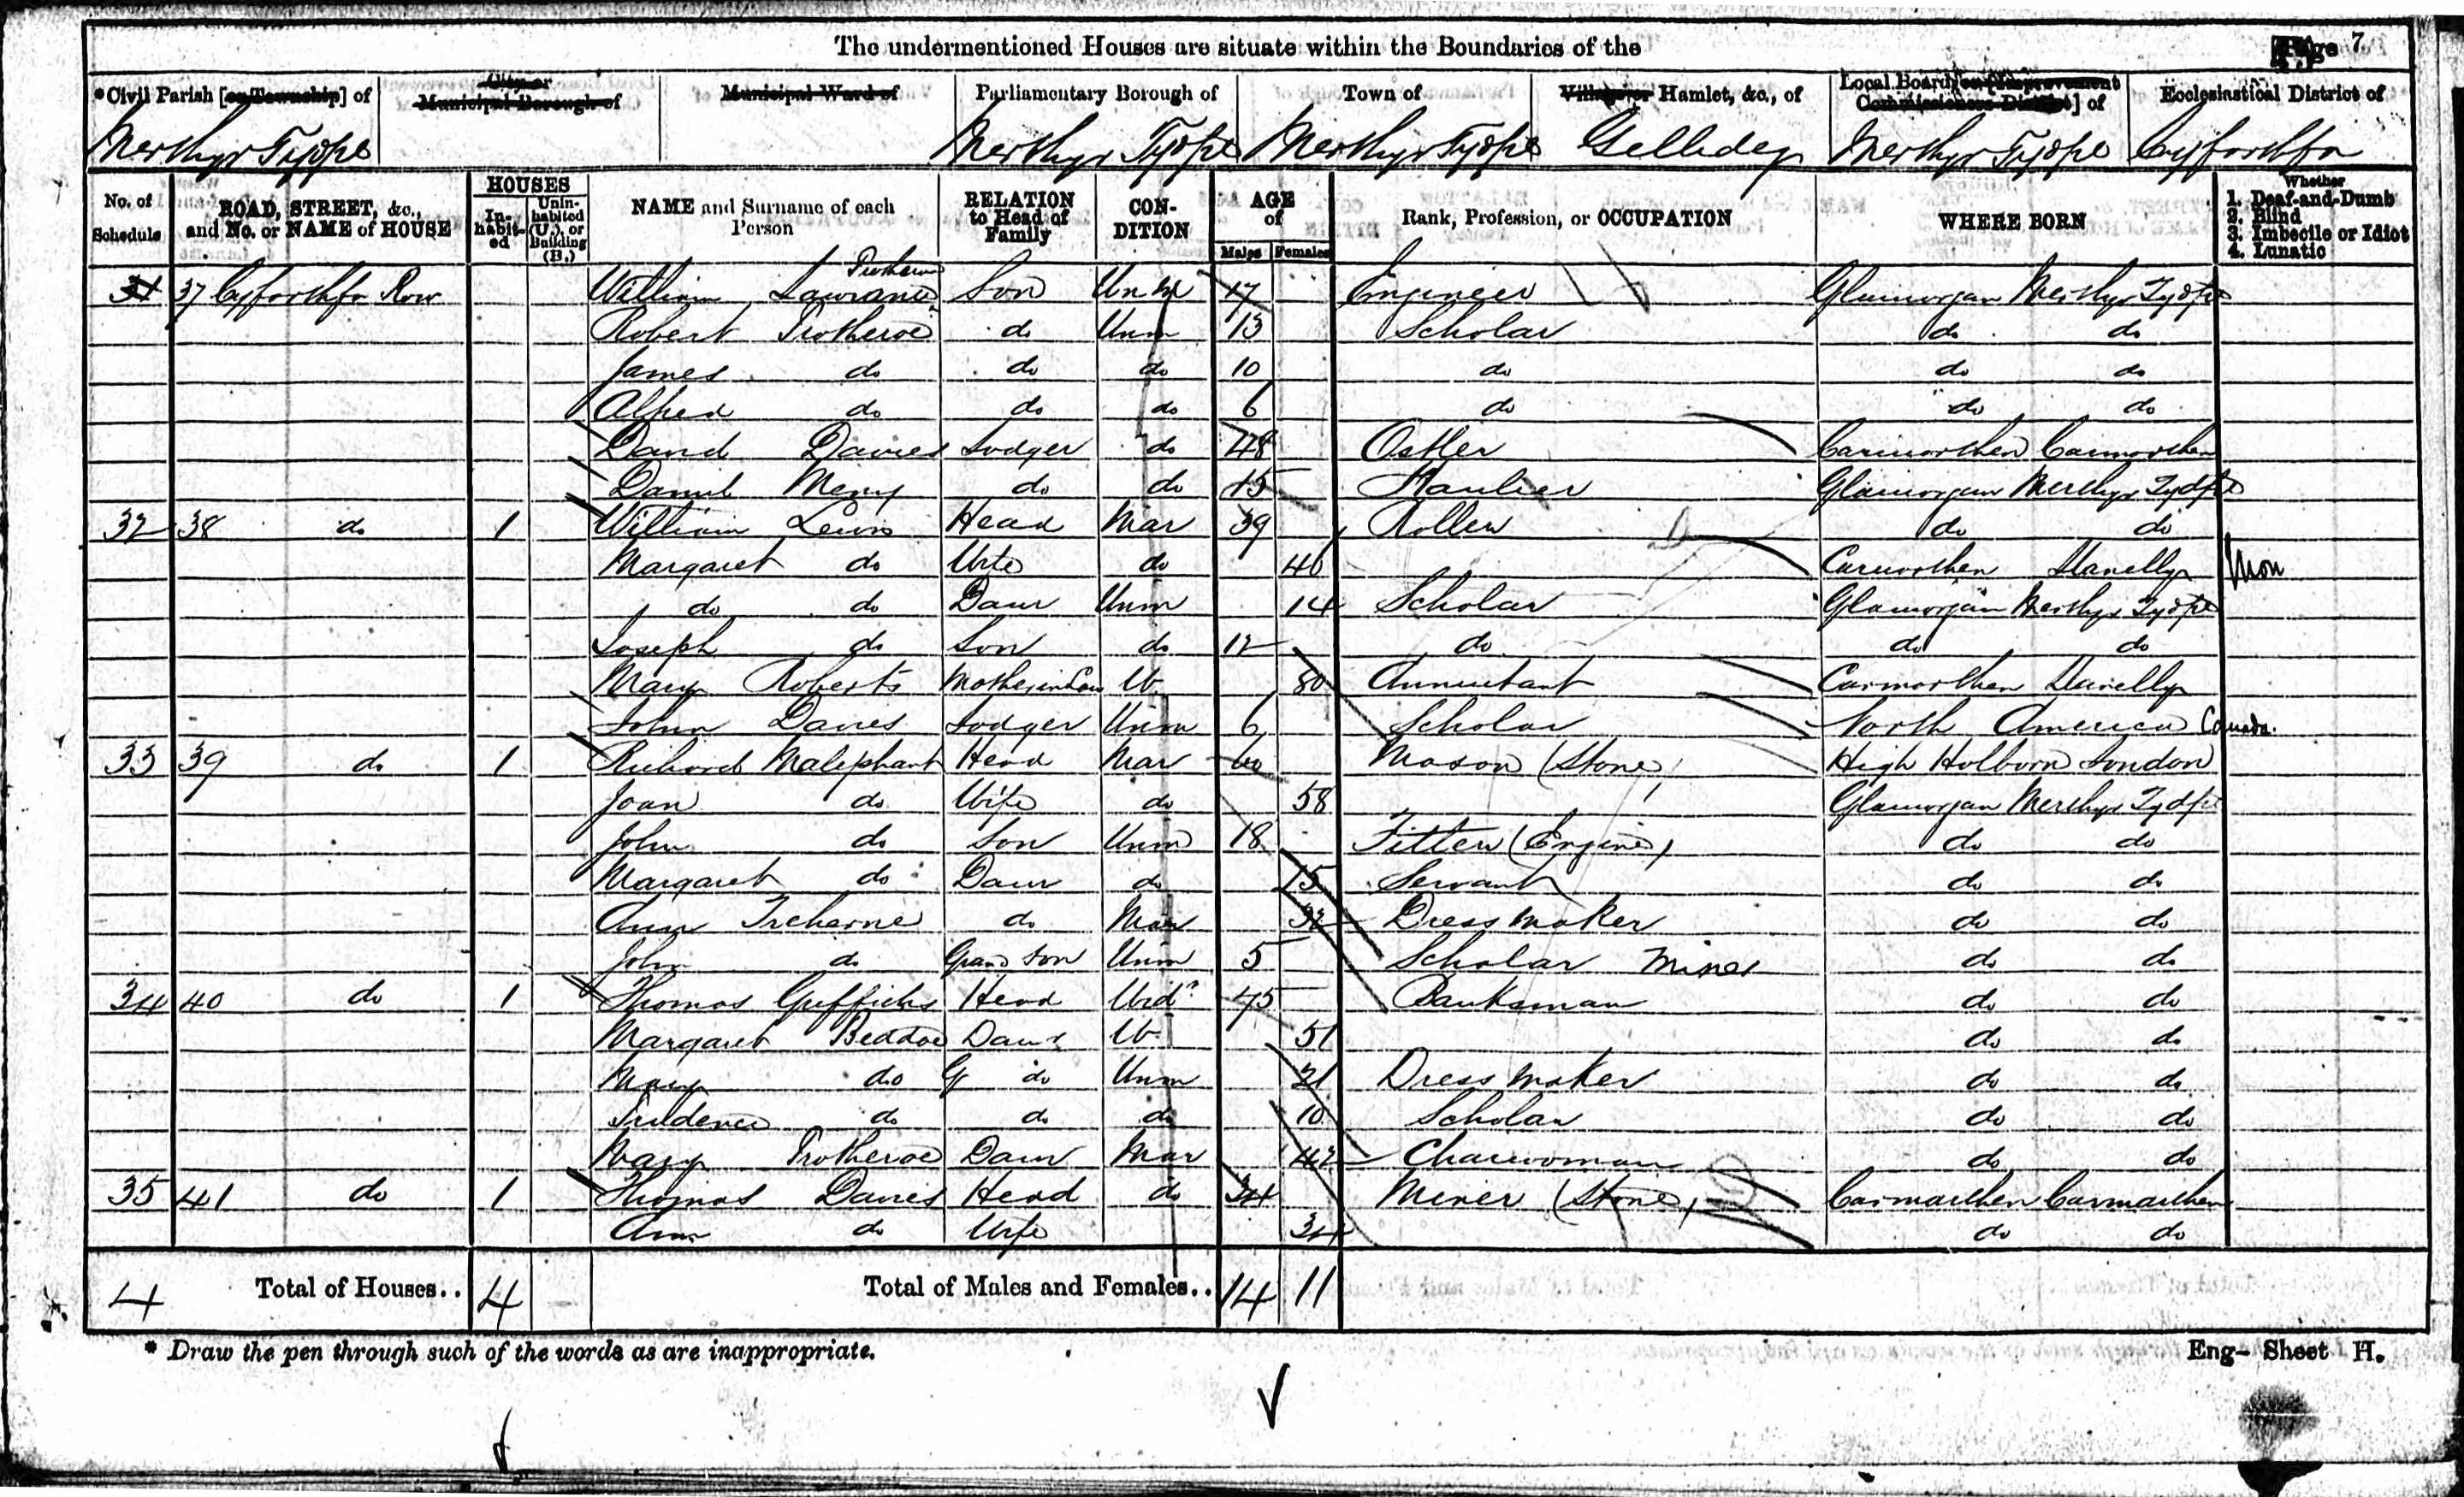 The undermentioned Houses are situate within the Boundaries of the
Page 7
*Civil Parish [or Township] of | City or Municipal Borough of | Municipal Ward of | Parliamentary Borough of | Town of | Village or Hamlet, &c., of | Local Board, [or Improvement Commissioners District] of | Ecclesiastical District of
Merthyr Tydfil | Merthyr Tydfil | Merthyr Tydfil | Gellideg | Merthyr Tydfil | Cyfarthfa
No. of Schedule | ROAD, STREET, &c., and No. or NAME of HOUSE | HOUSES Inhabited | Uninhabited (U.), or Building (B.) | NAME and Surname of each Person | RELATION to Head of Family | CONDITION | AGE of Males | Females | Rank, Profession, or OCCUPATION | WHERE BORN | Whether 1. Deaf-and-Dumb 2. Blind 3. Imbecile or Idiot 4. Lunatic
31 37 Cyfarthfa Row William Lawrance Protheroe Son Unm 17 Engineer Glamorgan Merthyr Tydfil
Robert Protheroe do Unm 13 Scholar do do
James do do do 10 do do do
Alfred do do do 6 do do do
David Davies Lodger do 48 Ostler Carmarthen Carmarthen
Daniel Meny do do 15 Haulier Glamorgan Merthyr Tydfil
32 38 do 1 William Lewis Head Mar 39 Roller do do
Margaret do Wife do 40 Carmarthen Llanelly Mon
do do Daur Unm 14 Scholar Glamorgan Merthyr Tydfil
Joseph do Son do 12 do do do
Mary Roberts Mother in Law W 80 Annuitant Carmarthen Llanelly
John Davies Lodger Unm 6 Scholar North America Canada.
33 39 do 1 Richard Maliphant Head Mar 60 Mason (Stone) High Holborn London
Joan do Wife do 58 Glamorgan Merthyr Tydfil
John do Son Unm 18 Fitter (Engine) do do
Margaret do Daur do 15 Servant do do
Ann Treharne do Mar 32 Dress maker do do
John do Grand Son Unm 5 Scholar do do
34 40 do 1 Thomas Griffiths Head Widr 75 Banksman Mines do do
Margaret Beddoe Daur W 51 do do
Mary do G do Unm 21 Dress maker do do
Prudence do do do 10 Scholar do do
Mary Protheroe Daur Mar 42 Charwoman do do
35 41 do 1 Thomas Davies Head do 34 Miner (Stone) Carmarthen Carmarthen
Ann do Wife 34 do do
4 Total of Houses.. 4 Total of Males and Females.. 14 11
* Draw the pen through such of the words as are inappropriate.
Eng- Sheet H.